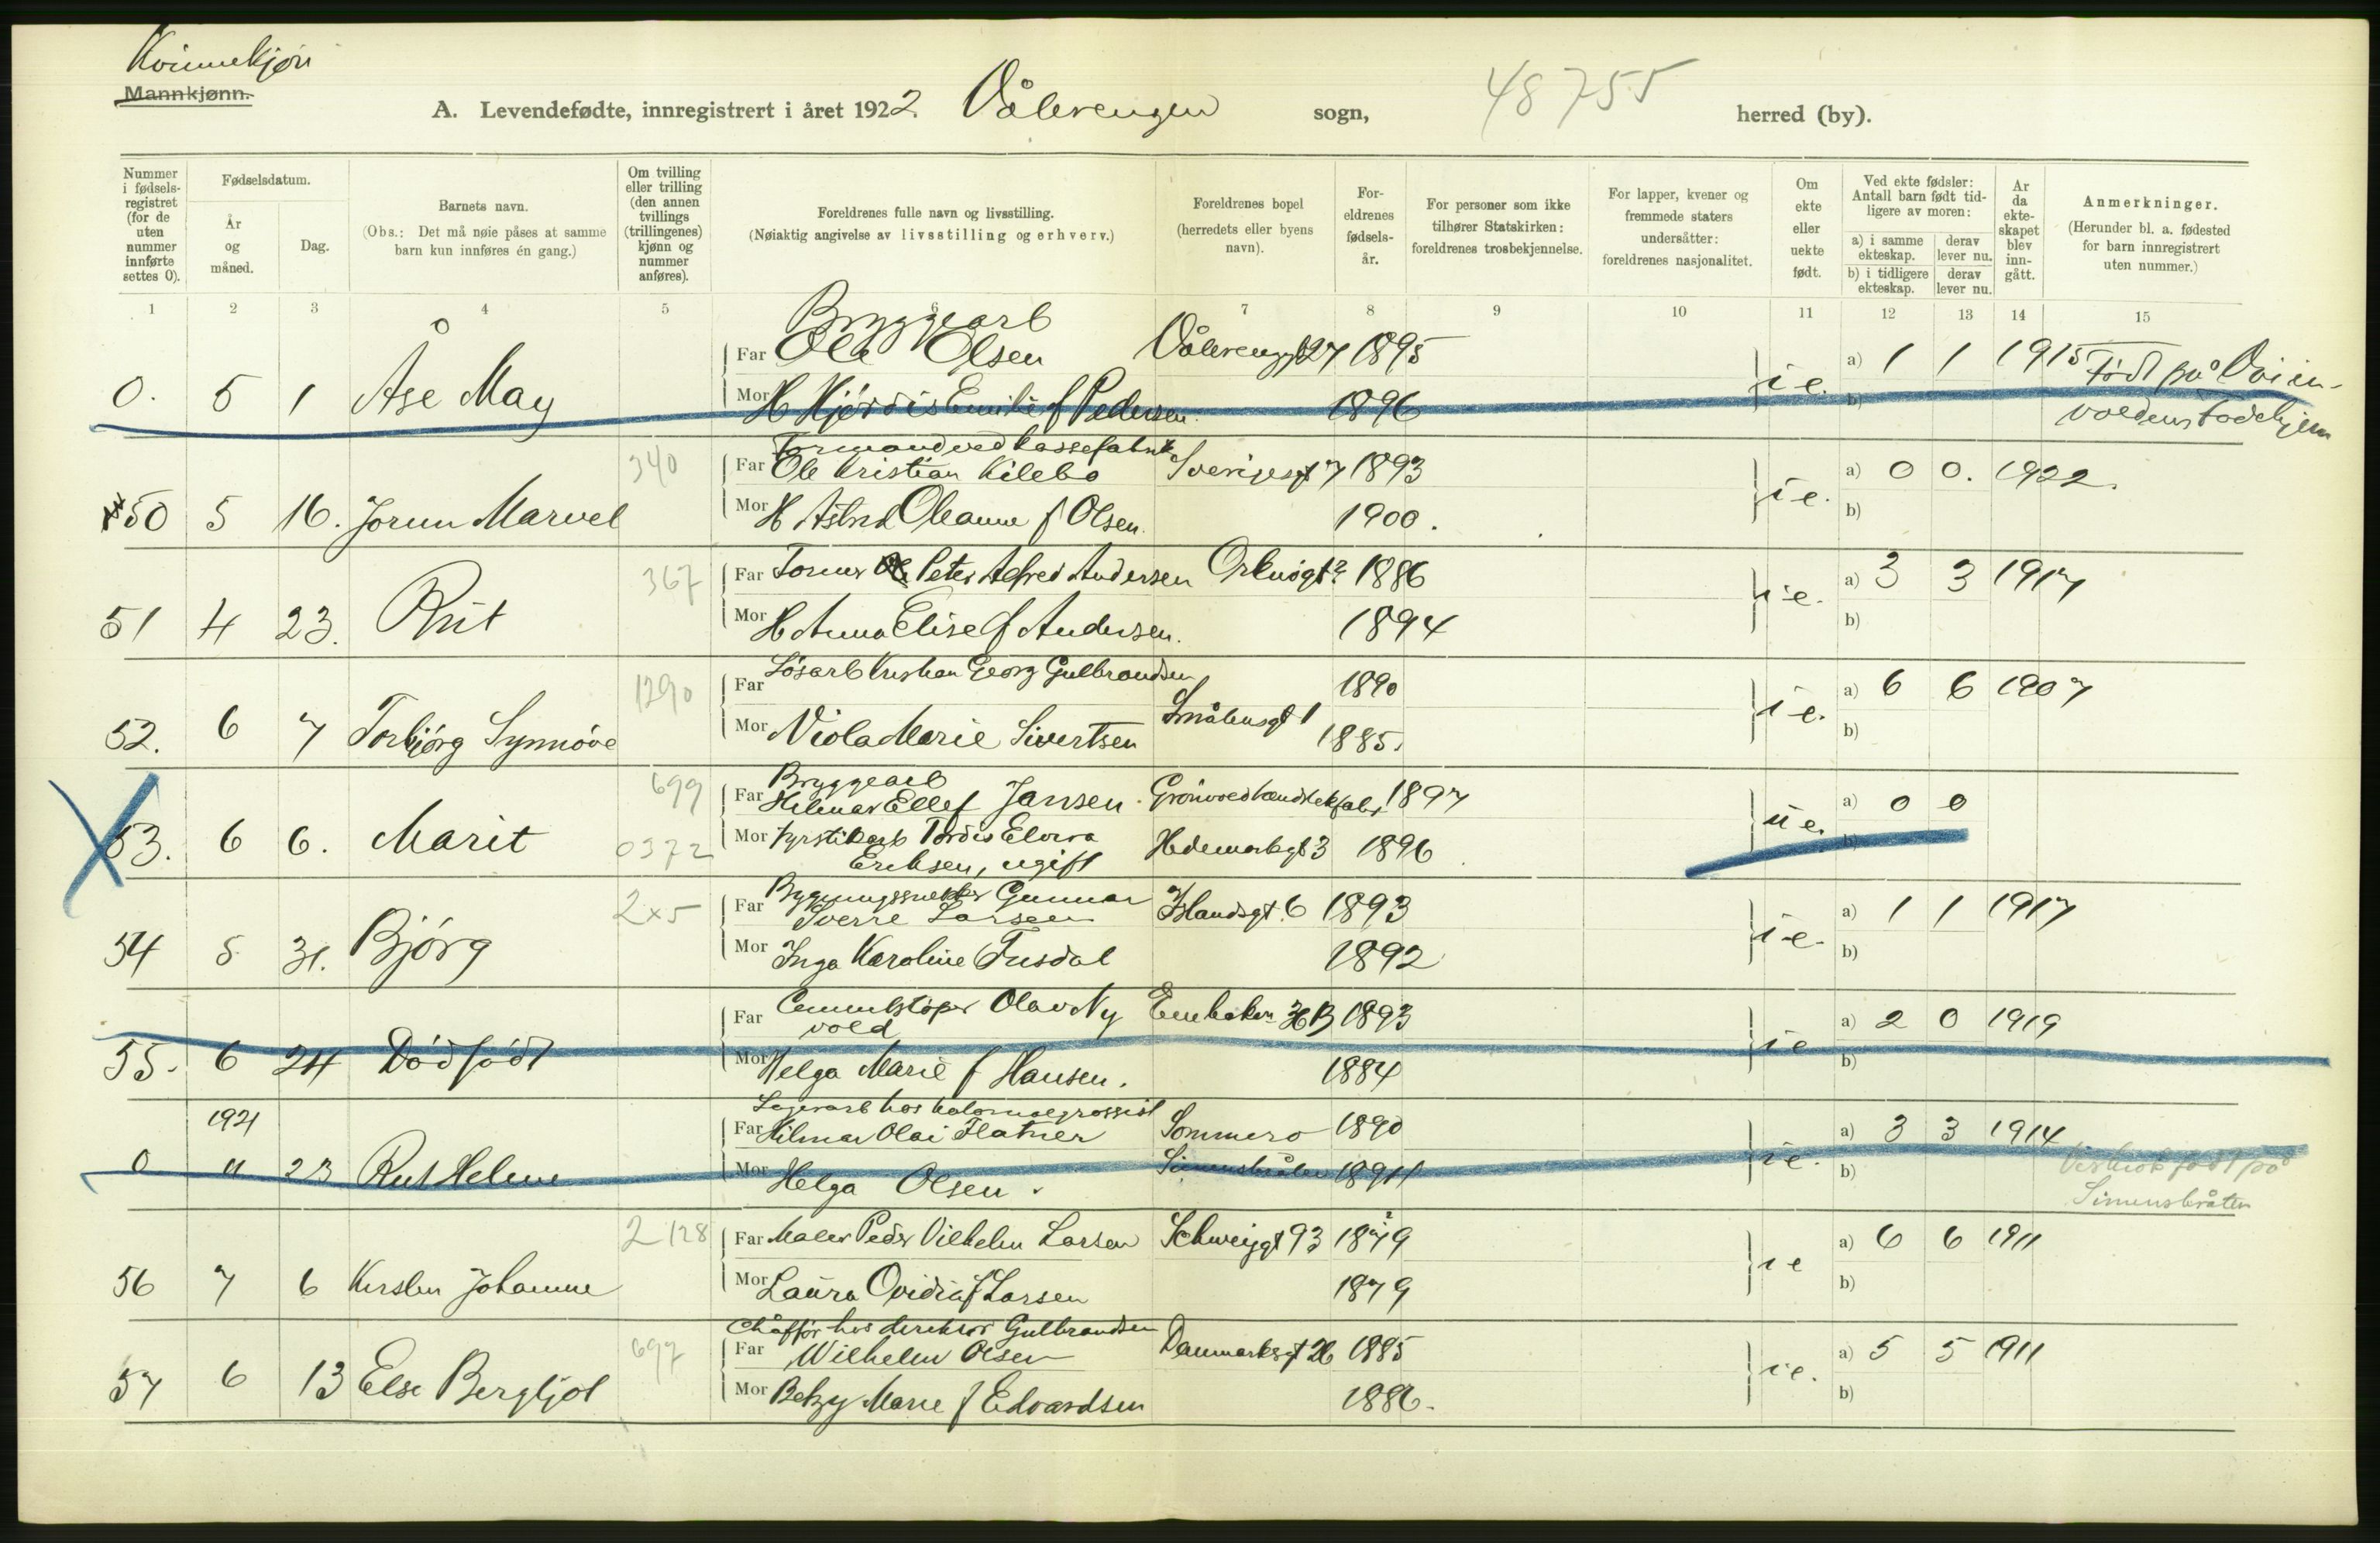 Kvinnekjøn
Mannkjønn.
A. Levendefødte, innregistrert i året 1922 Vålerengen sogn, 48755 herred (by).
Nummer i fødsels-registret (for de uten nummer innførte settes 0).
Fødselsdatum.
År og måned.
Dag.
Barnets navn.
(Obs.: Det må nøie påses at samme barn kun innføres én gang.)
Om tvilling eller trilling (den annen tvillings (trillingenes) kjønn og nummer anføres).
Foreldrenes fulle navn og livsstilling.
(Nøiaktig angivelse av livsstilling og erhverv.)
Foreldrenes bopel (herredets eller byens navn).
For-eldrenes fødsels-år.
For personer som ikke tilhører Statskirken: foreldrenes trosbekjennelse.
For lapper, kvener og fremmede staters undersåtter: foreldrenes nasjonalitet.
Om ekte eller uekte født.
Ved ekte fødsler: Antall barn født tid-ligere av moren:
a) i samme ekteskap.
derav lever nu.
b) i tidligere ekteskap.
derav lever nu.
År da ekte-skapet blev inn-gått.
Anmerkninger.
(Herunder bl. a. fødested for barn innregistrert uten nummer.)
1 2 3 4 5 6 7 8 9 10 11 12 13 14 15
Bryggearb
Far Ole Olsen Vålerenggt 27 1895
0. 5 1 Åse May i e. a) 1 1 1915 Født på
Mor H Hjørdis Emilie f Pedersen 1896 b)
Formand ved kassefabrik
340 Far Ole Kristian Kilebo Sverigesgt 7 1893 a) 0 0. 1922.
50 5 16. Jorun Marvel i e.
Mor H Astrid Oleanne f Olsen. 1900. b)
367 Far Former Peter Alfred Andersen Orknøgt 2 1886 a) 3 3 1917
51 4 23. Rut i e.
Mor H Anna Elise f Andersen. 1894 b)
1290 Far Løsarb Kristian Georg Gulbrandsen 1890 a) 6 6 1907
52. 6 7 Torbjørg Synnøve Smålensgt 1 i e.
Mor Viola Marie Sivertsen 1885. b)
Bryggearb
699 Far Hilmar Ellef Jansen. 1897 a) 0 0
53. 6 6. Marit u e.
0372 Mor Fyrstikarb Tordis Elvira Hedemarkgt 3 1896 b)
Eriksen, ugift
2x5 Far Bygningssnekker Gunnar Islandsgt. 6 1893 a) 1 1 1917
Sverre Larsen
54 5 31. Bjørg i e.
Mor Inga Karoline Tusdal 1892 b)
Far Cementstøper Olav Ny 1893 a) 2 0 1919
vold
55. 6 24 Dødfødt i e
Mor Helga Marie f Hansen. 1884 b)
1921
Lagerarb hos kolonialgrossist
Far Hilmar Olai Flatner Sommero 1890 a) 3 3 1914
0 11 23 Rut Helene Simensbråten i e.
Mor Helga Olsen. 1894 b) født på
Simensbråten
2 128 Far Maler Peder Vilhelm Larsen Schweiggt 93 1879 a) 6 6 1911
56 7 6 Kirsten Johanne i e
Mor Laura Ovidia f Larsen 1879 b)
Chåffør hos direktør Gulbrandsen
697 Far Wilhelm Olsen Danmarksgt 26 1885 a) 5 5 1911
57 6 13 Else Bergljot i e.
Mor Betzy Marie f Edvardsen 1886. b)